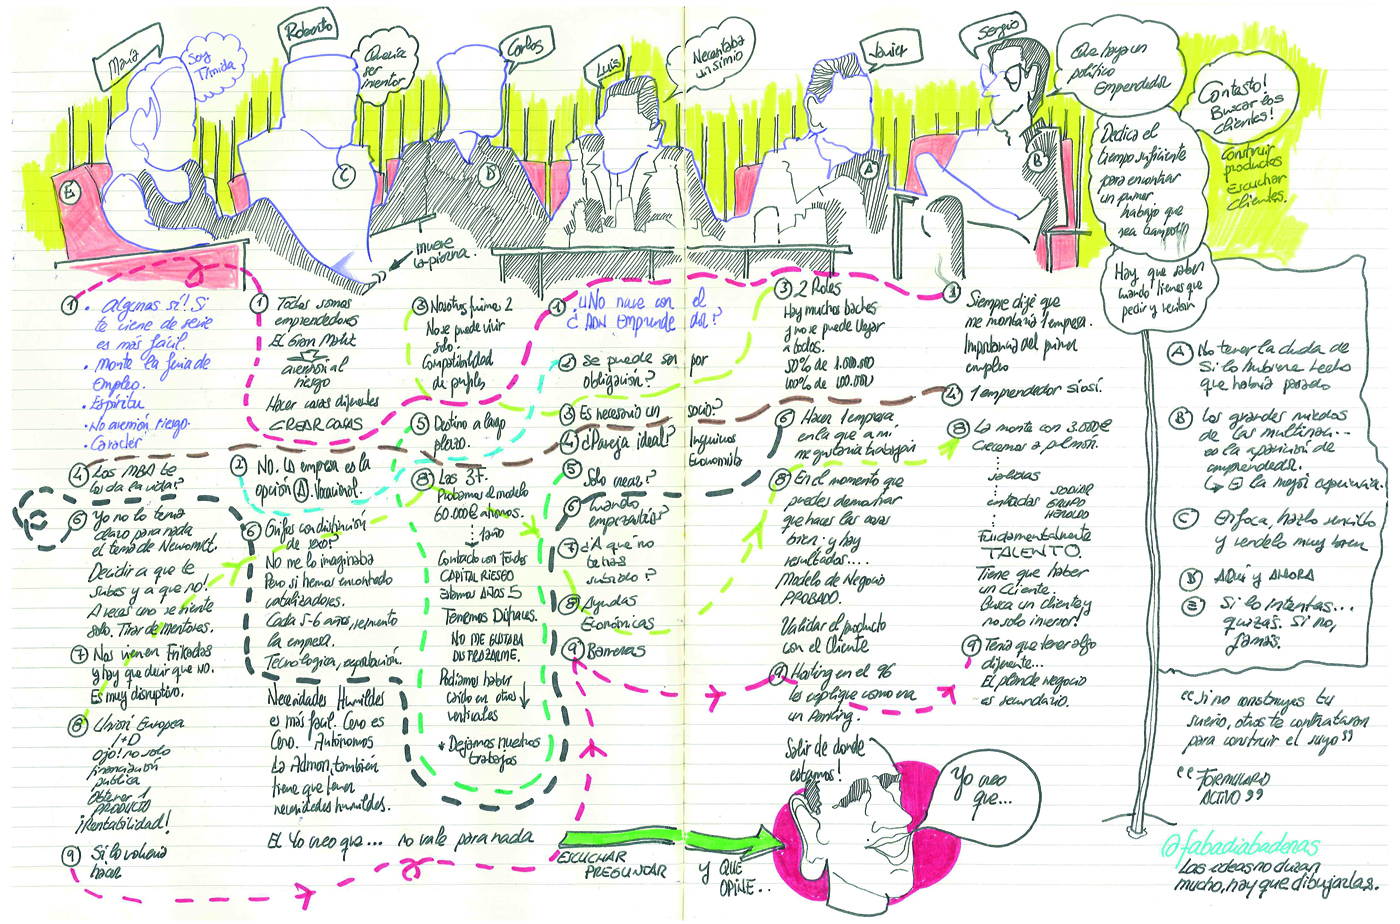 María
Soy
Tímida
Roberto
Quería
ser
inventor
Carlos
Luis
Necesitaba
un simio
Javier
Sergio
Que haya un
político
Emprendedor
Contesto!
Buscar los
clientes!
Construir
productos
Escuchar
Clientes.
Dedica el
tiempo suficiente
para encontrar
un primer
trabajo que
sea trampolín
Hay que saber
cuando tienes que
pedir y rendar
E
C
B
A
B
mueve
la pierna.
1
• Algunas sí!! Si
te viene de serie
es más fácil.
• Monte la feria de
Empleo.
• Espíritu
• No aversión riesgo.
• Caracter
4 Los MBA te
los da la vida?
5 Yo no lo tenía
claro para nada
el tema de
Decidir a que te
subes y a que no!
A veces uno se siente
solo. Tirar de mentores.
7 Nos vienen Frikadas
y hay que decir que NO.
Es muy disruptivo.
8 Unión Europea
I+D
ojo! no solo
financiación
pública
Obtener 1
PRODUCTO
¡Rentabilidad!
9 Si lo volvería
hacer
1 Todos somos
emprendedores
El Gran Matiz
aversión al
riesgo
Hacer cosas diferentes
CREAR COSAS
2 NO. La empresa es la
opción A. Vocacional.
6 Gafes con distinción
de sexo?
No me lo imaginaba
Pero si hemos encontrado
catalizadores.
Cada 5-6 años, reinvento
la empresa.
Tecnologica, exportación.
Necesidades Humildes
es más fácil. Cero es
Cero. Autónomos
La Admon, tambien
tiene que tener
necesidades humildes.
El Yo creo que... no vale para nada
3 Nosotros fuimos 2
No se puede vivir
solo.
Compatibilidad
de perfiles
5 Destino a largo
plazo.
8 Las 3F.
Probamos el modelo
60.000€ ahorros.
1 año
Contado con Fondos
CAPITAL RIESGO
Estamos AÑOS 5
Tenemos Disfraces.
NO ME GUSTABA
DISFRAZARME.
Podíamos haber
caído en otros
verticales
* Dejamos nuestros
trabajos
1 ¿¿No nace con el
¿ADN Emprendedor?
2 Se puede ser por
obligación?
3 Es necesario un socio?
4 ¿Pareja ideal? Ingenieros
Economista
5 Solo crear?
6 Cuando
empezasteis?
7 ¿A qué no
te has
subido?
8 Ayudas
Económicas
9 Barreras
3 2 Roles
Hay muchos baches
y no se puede llegar
a todos.
50% de 1.000.000
100% de 100.000
6 Hacer 1 empresa
en la que a mi
me gustaria trabajar
8 En el momento que
puedes demostrar
que haces las cosas
bien y hay
resultados....
Modelo de Negocio
PROBADO.
Validar el producto
con el Cliente
9 Hosting en el 96
les explique como era
un Parking.
Salir de donde
estamos!
1 Siempre dije que
me montaría 1 empresa.
Importancia del primer
empleo
4 1 emprendedor si o si.
8 La monte con 3.000€
Crecemos a pulmón.
salidas
entradas SOCIOS GRUPO
HERALDO
Fundamentalmente
TALENTO.
Tiene que haber
un cliente.
Busca un cliente y
no solo inversor!
9 Tenia que tener algo
diferente...
El plan de negocio
es secundario.
A No tener la duda de
Si lo hubiera hecho
que habría pasado
B Los grandes miedos
de las multinac...
es la aparición de
emprendedor.
↳ Es la mayor experiencia.
C Enfoca, hazlo sencillo
y vendelo muy bien
B AQUÍ y AHORA
E Si lo intentas...
quizás. Si no,
jamás.
"Si no construyes tu
sueño, otros te contrataran
para construir el suyo"
"FORMULARIO
ACTIVO"
ESCUCHAR
PREGUNTAR
y QUE
OPINE..
Yo creo
que...
@fabadiabadenas
Las ideas no duran
mucho, hay que dibujarlas.